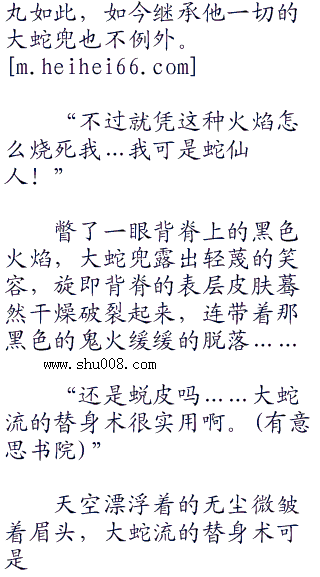 丸如此，如今继承他一切的
大蛇兜也不例外。
[m.heihei66.com]
“不过就凭这种火焰怎
么烧死我…我可是蛇仙
人！”
瞥了一眼背脊上的黑色
火焰，大蛇兜露出轻蔑的笑
容，旋即背脊的表层皮肤蓦
然干燥破裂起来，连带着那
黑色的鬼火缓缓的脱落……
www.shu008.com
“还是蜕皮吗……大蛇
流的替身术很实用啊。(有意
思书院)”
天空漂浮着的无尘微皱
着眉头，大蛇流的替身术可
是